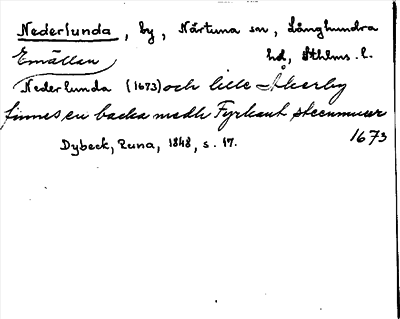 Nederlunda, by, Närtuna sn, Långhundra
Emällan hd, Sthlms. l.
Nederlunda (1673) och lille Åkerby
finnes en backa medh Fyrkant steenmuur
1673
Dybeck, Runa, 1848, s. 17.